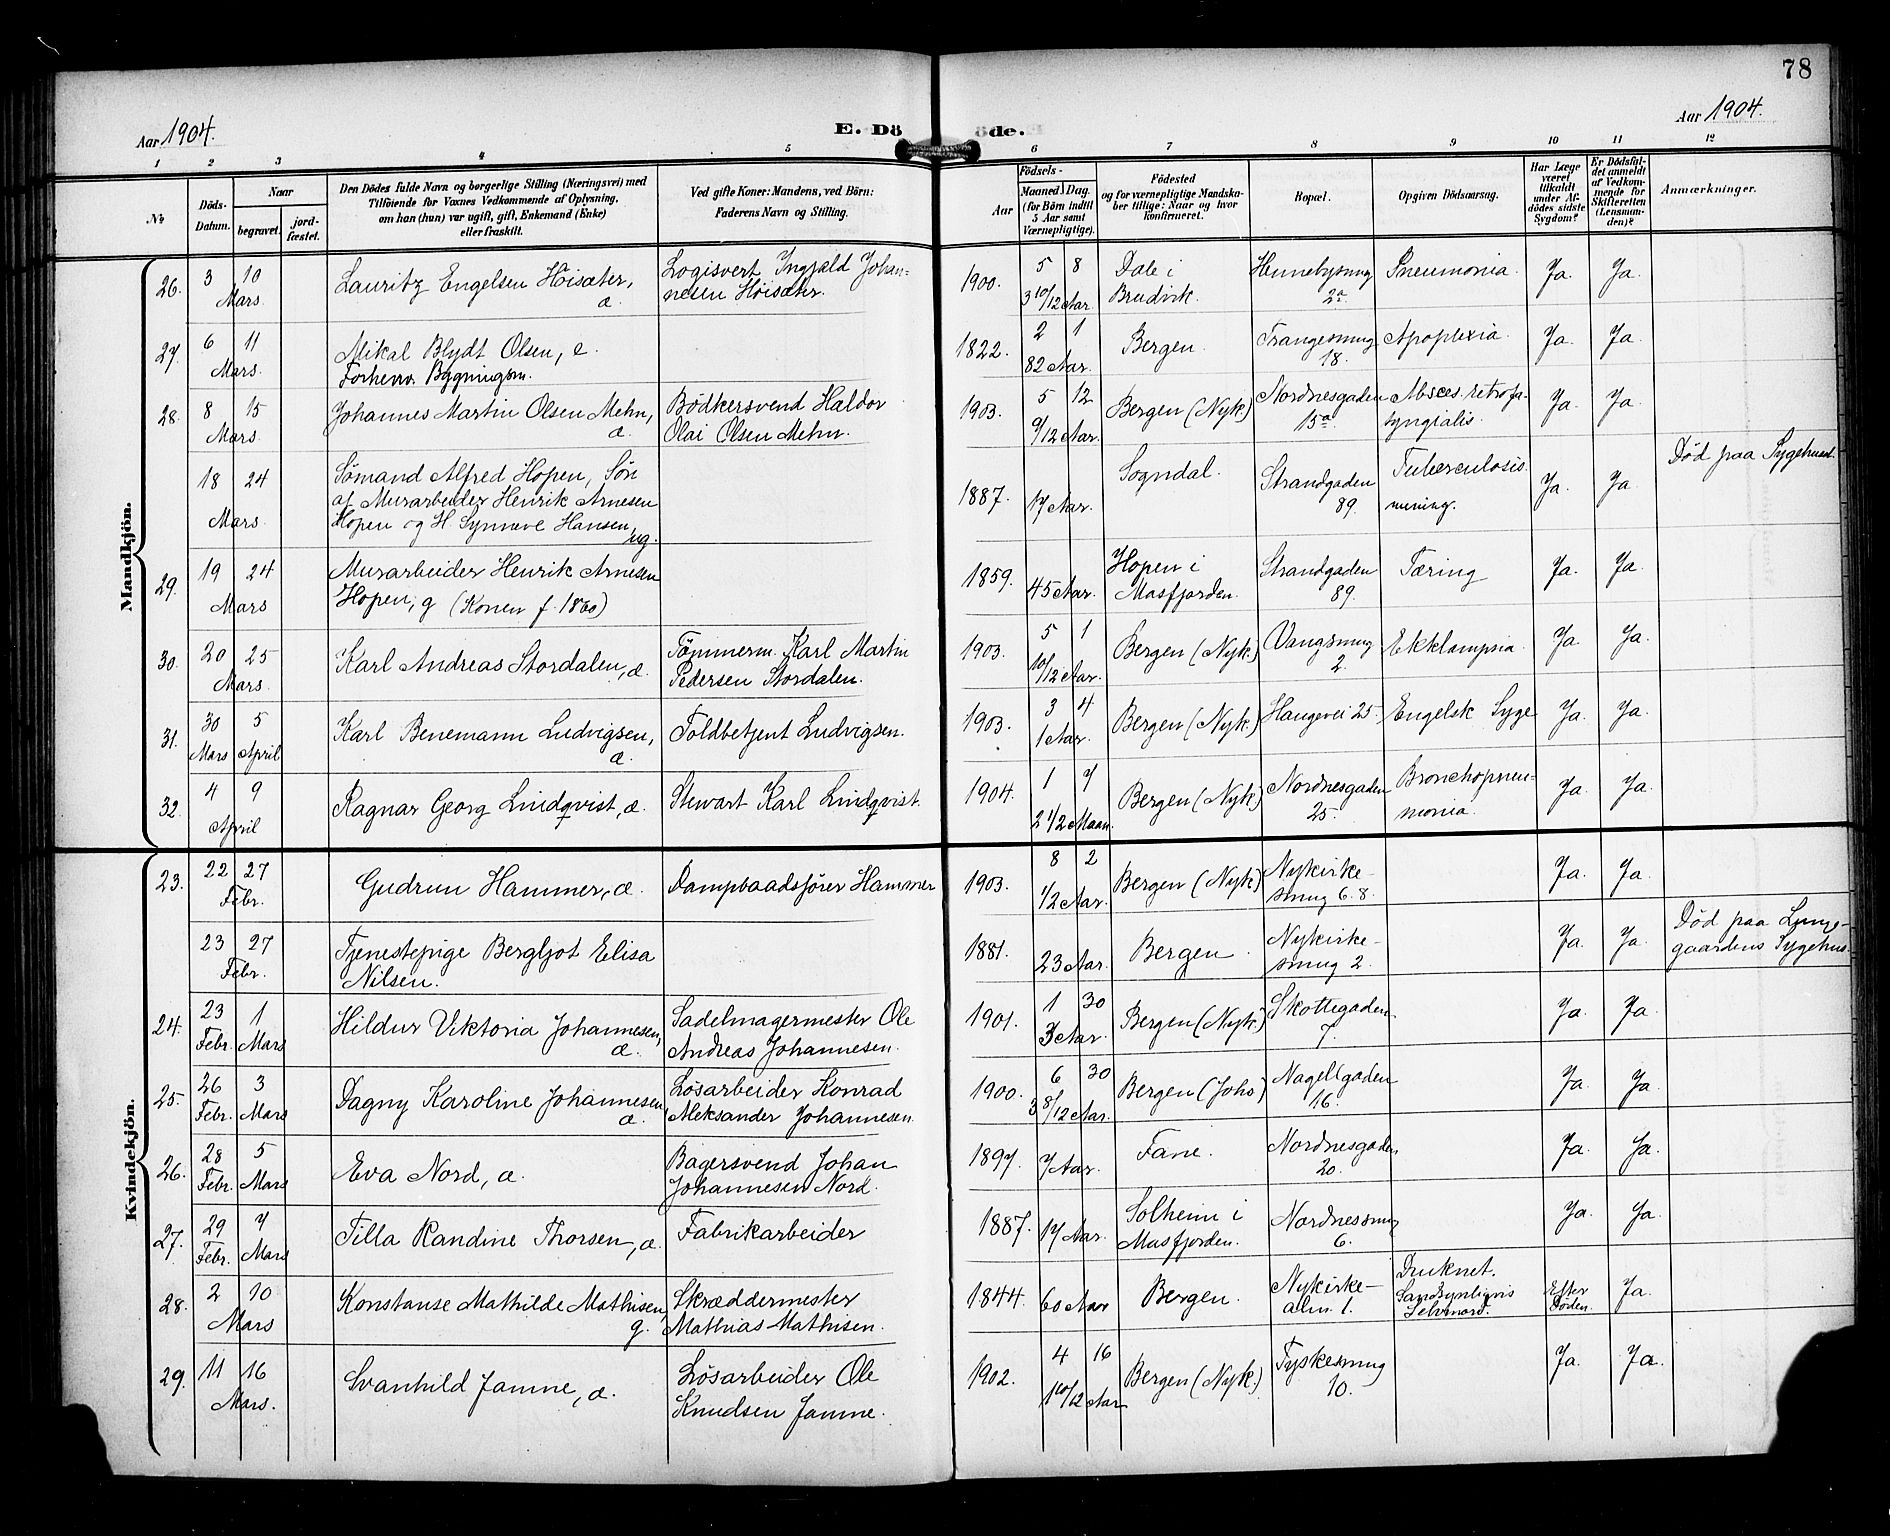 78
Aar 1904.
E. Dö
öde.
Aar 1904.
1 2 3 4 5 6 7 8 9 10 11 12
№
Döds-
Datum.
Naar
begravet.
jord-
fæstet.
Den Dödes fulde Navn og borgerlige Stilling (Næringsvei) med
Tilföiende for Voxnes Vedkommende af Oplysning,
om han (hun) var ugift, gift, Enkemand (Enke)
eller fraskilt.
Ved gifte Koner: Mandens, ved Börn:
Faderens Navn og Stilling.
Födsels-
Aar
Maaned Dag.
(for Börn indtil
5 Aar samt
Værnepligtige).
Födested
og for værnepligtige Mandska-
ber tillige: Naar og hvor
konfirmeret.
Bopæl.
Opgiven Dödsaarsag.
Har Læge
været
tilkaldt
under Af-
dödes sidste
Sygdom?
Er Dödsfal-
det anmeldt
af Vedkom-
mende for
Skifteretten
(Lensman-
den)?
Anmærkninger.
Mandkjön.
26. 3 10 Lauritz Engelsen Höisæter, Logisvert Ingjald Johan- 1900. 5 8 Dale i Hennebysmug Pneumonia. Ja. Ja.
Mars. a. nesen Höisæter. 3 10/12 Aar. Brudvik. 2a
27. 6 11 Mikal Blydt Olsen, e. 1822. 2 1 Bergen. Trangesmug Apoplexia. Ja. Ja.
Mars. Forhenv. Bygningsm. 82 Aar. 18.
28. 8 15 Johannes Martin Olsen Mehn, Bödkersvend Haldor 1903. 5 12 Bergen (Nyk) Nordnesgaden Absces. retrofa- Ja. Ja.
Mars. a. Olai Olsen Mehn. 9/12 Aar. 15a. ryngialis.
18 24 Sömand Alfred Hopen, Sön 1887. 17 Aar. Sogndal. Strandgaden Tuberculosis Ja. Ja. Död paa Sygehuset.
Mars. af Murarbeider Henrik Arnesen 89. mening.
Hopen og H. Synneve Hansen, ug.
29. 19 24 Murarbeider Henrik Arnesen 1859. 45 Aar. Hopen i Strandgaden Tæring Ja. Ja.
Mars Hopen, g (Konen f. 1860) Masfjorden. 89.
30. 20 25 Karl Andreas Stordalen, a. Tömmerm. Karl Martin 1903. 5 1 Bergen (Nyk.) Vangsmug Ekklampsia. Ja. Ja.
Mars. Pedersen Stordalen. 10/12 Aar. 2.
31. 30 5 Karl Benemann Ludvigsen, Toldbetjent Ludvigsen. 1903. 3 4 Bergen (Nyk.) Haugevei 25. Engelsk Syge Ja. Ja.
Mars April a. 1 Aar.
32. 4 9 Ragnar Georg Lindqvist, a. Stewart Karl Lindqvist. 1904. 1 7 Bergen (Nyk) Nordnesgaden Bronchopneu- Ja. Ja.
April 2 1/2 Maan. 25. monia.
Kvindekjön.
23. 22 27 Gudrun Hammer, a. Dampbaadsförer Hammer 1903. 8 2 Bergen (Nyk) Nykirke- Ja. Ja.
Febr. 1/2 Aar. smug 6.8.
23 27 Tjenestepige Bergljot Elisa 1881. 23 Aar. Bergen. Nykirke- Ja. Ja. Död paa Lunge-
Febr. Nilsen. smug 2. gaardens Sygehus.
24. 23 1 Hildur Viktoria Johannesen, Sadelmagermester Ole 1901. 1 30 Bergen (Nyk.) Skottegaden Ja. Ja.
Febr. Mars a. Andreas Johannesen. 3 Aar. 7.
25. 26 3 Dagny Karoline Johannesen, Lösarbeider Konrad 1900. 6 30 Bergen (Johs) Nagelgaden Ja. Ja.
Febr. Mars a. Aleksander Johannesen. 3 8/12 Aar. 16.
26. 28 5 Eva Nord, a. Bagersvend Johan 1897. 7 Aar. Fane. Nordnesgaden Ja. Ja.
Febr. Mars Johannesen Nord. 20.
27. 29 7 Tilla Randine Thorsen, a. Fabrikarbeider 1887. 17 Aar. Solheim i Nordnessmug Ja. Ja.
Febr. Mars Masfjorden. 6.
28. 2 10 Konstanse Mathilde Mathisen, Skræddermester 1844. 60 Aar Bergen. Nykirke- Druknet. Efter Ja.
Mars g. Mathias Mathisen. alm. 1. Sandsynligvis Döden.
Selvmord.
29. 11 16 Svanhild Jamne, a. Lösarbeider Ole 1902. 4 16 Bergen (Nyk.) Tyskesmug Ja. Ja.
Mars. Knudsen Jamne. 1 10/12 Aar 10.